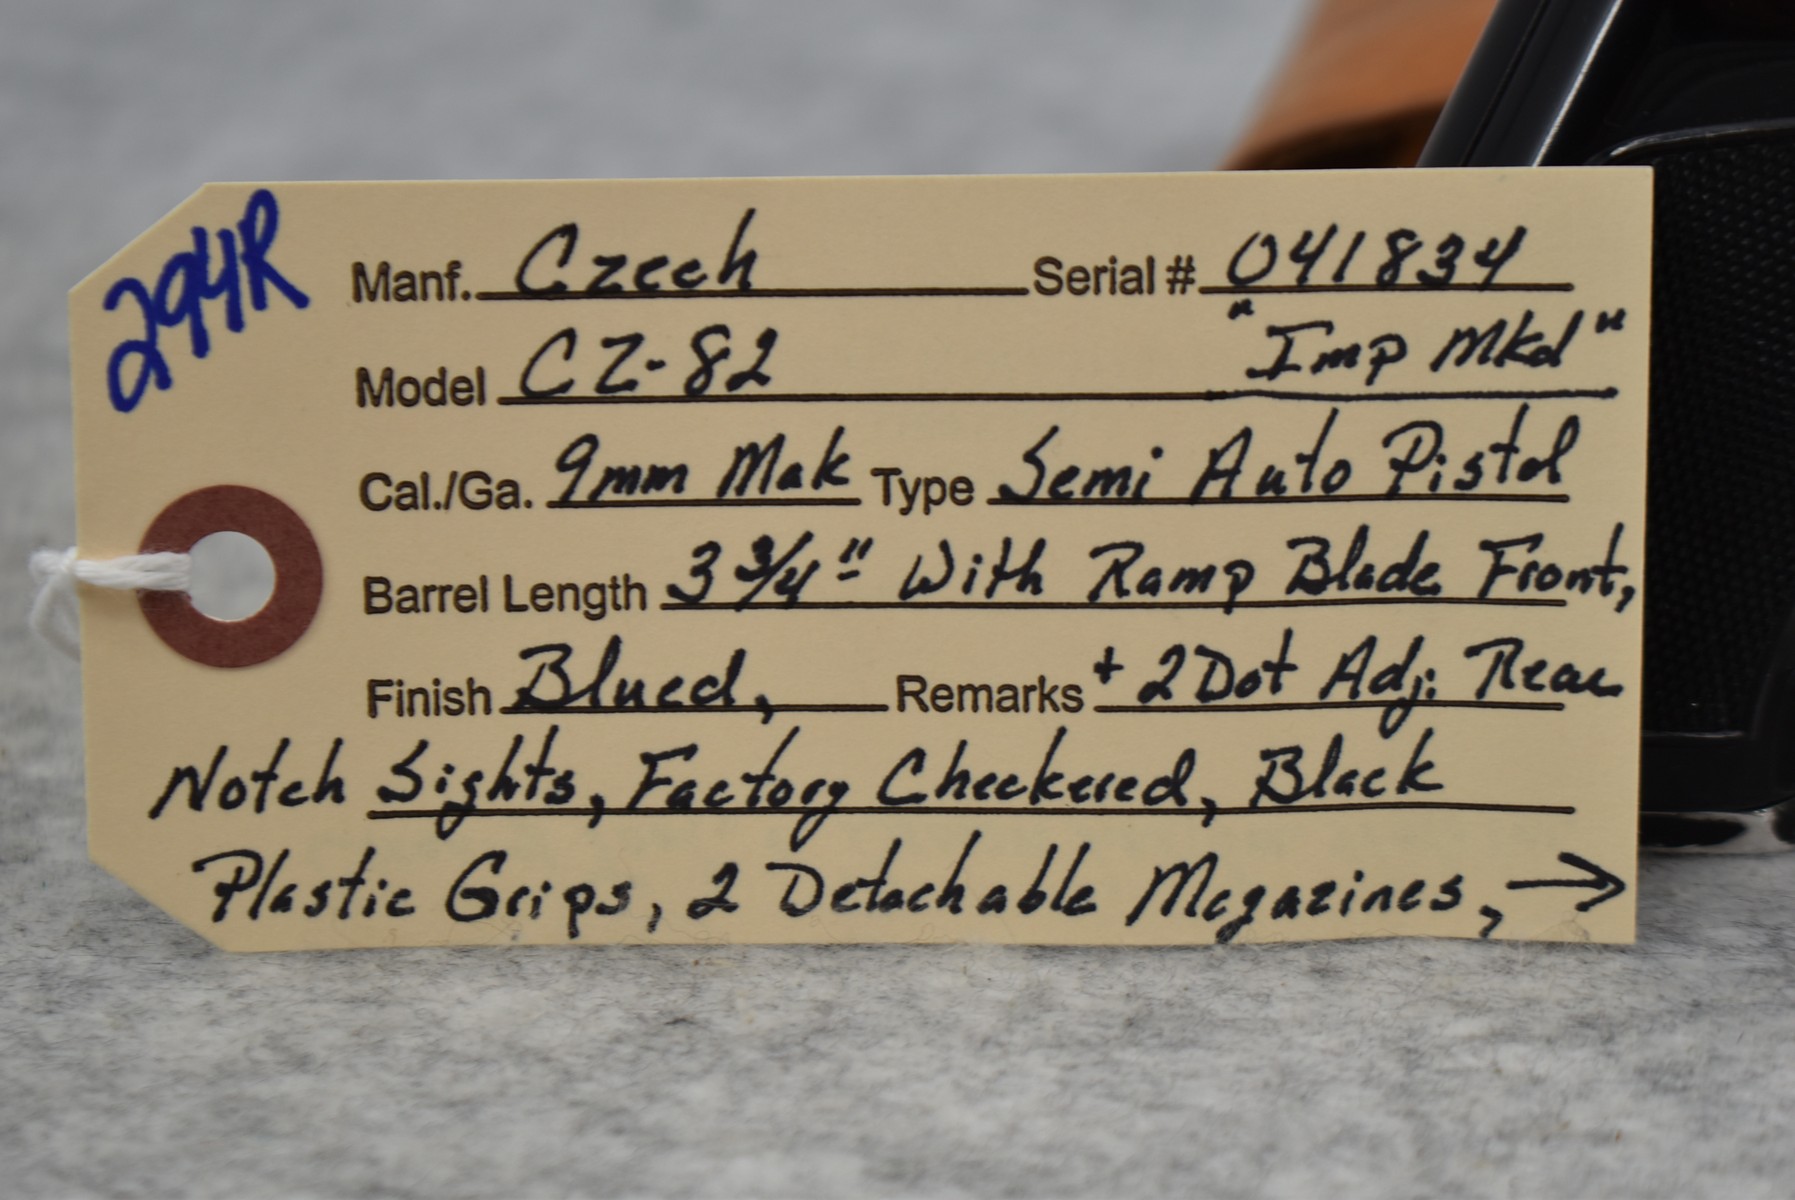 294R
Manf. Czech Serial # 041834
Model CZ-82 "Imp Mkd"
Cal./Ga. 9mm Mak Type Semi Auto Pistol
Barrel Length 3 3/4" With Ramp Blade Front,
Finish Blued, Remarks + 2 Dot Adj. Rear
Notch Sights, Factory Checkered, Black
Plastic Grips, 2 Detachable Magazines, →